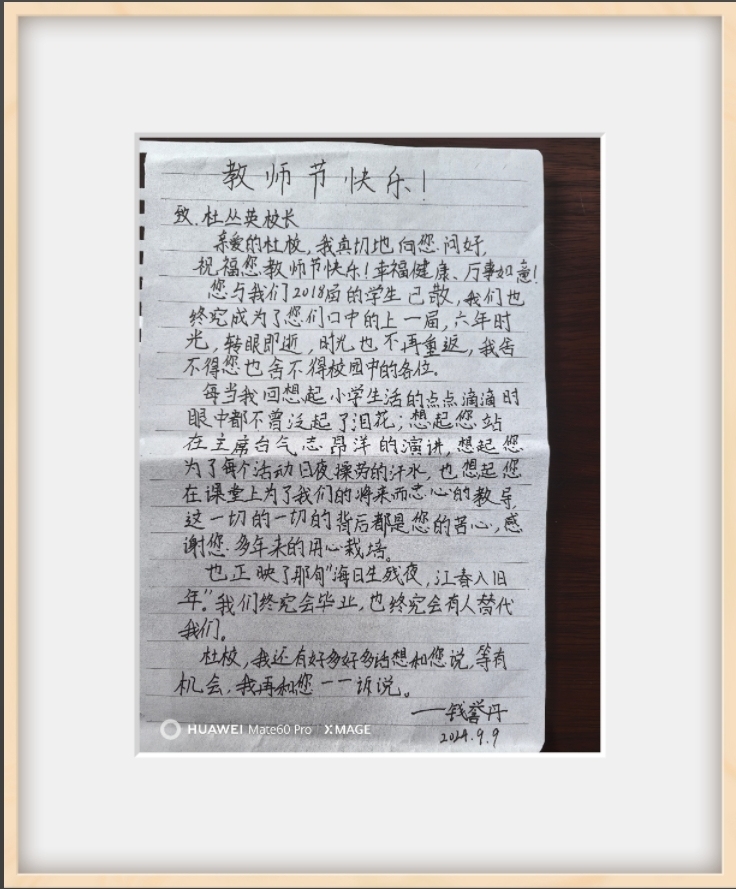 教师节快乐！
致.杜丛英校长
亲爱的杜校，我真切地向您问好，
祝福您教师节快乐！幸福健康、万事如意！
您与我们2018届的学生已散，我们也
终究成为了您们口中的上一届，六年时
光，转眼即逝，时光也不再重返，我舍
不得您也舍不得校园中的各位。
每当我回想起小学生活的点点滴滴时
眼中都不曾泛起了泪花；想起您站
在主席台气志昂洋的演讲，想起您
为了每个活动日夜操劳的汗水，也想起您
在课堂上为了我们的将来而忠心的教导，
这一切的一切的背后都是您的苦心，感
谢您多年来的用心栽培。
也正映了那句“海日生残夜，江春入旧
年。”我们终究会毕业，也终究会有人替代
我们。
杜校，我还有好多好多话想和您说，等有
机会，我再和您一一诉说。
——钱誉丹
2024.9.9
HUAWEI Mate60 Pro XMAGE